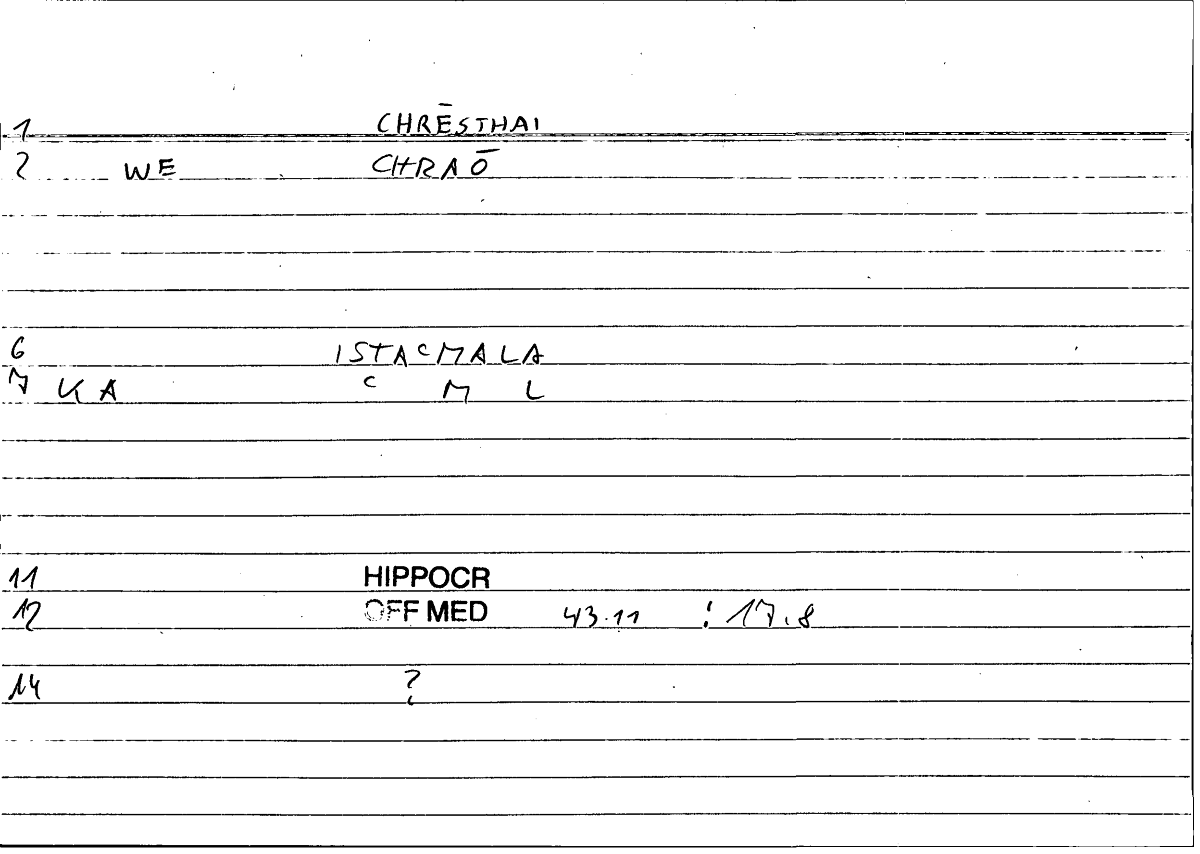 1 CHRĒSTHAI
2 WE CHRAŌ
6 ISTAᶜMALA
7 KA ᶜ M L
11 HIPPOCR
12 OFF MED 43.11 : 17.8
14 ?